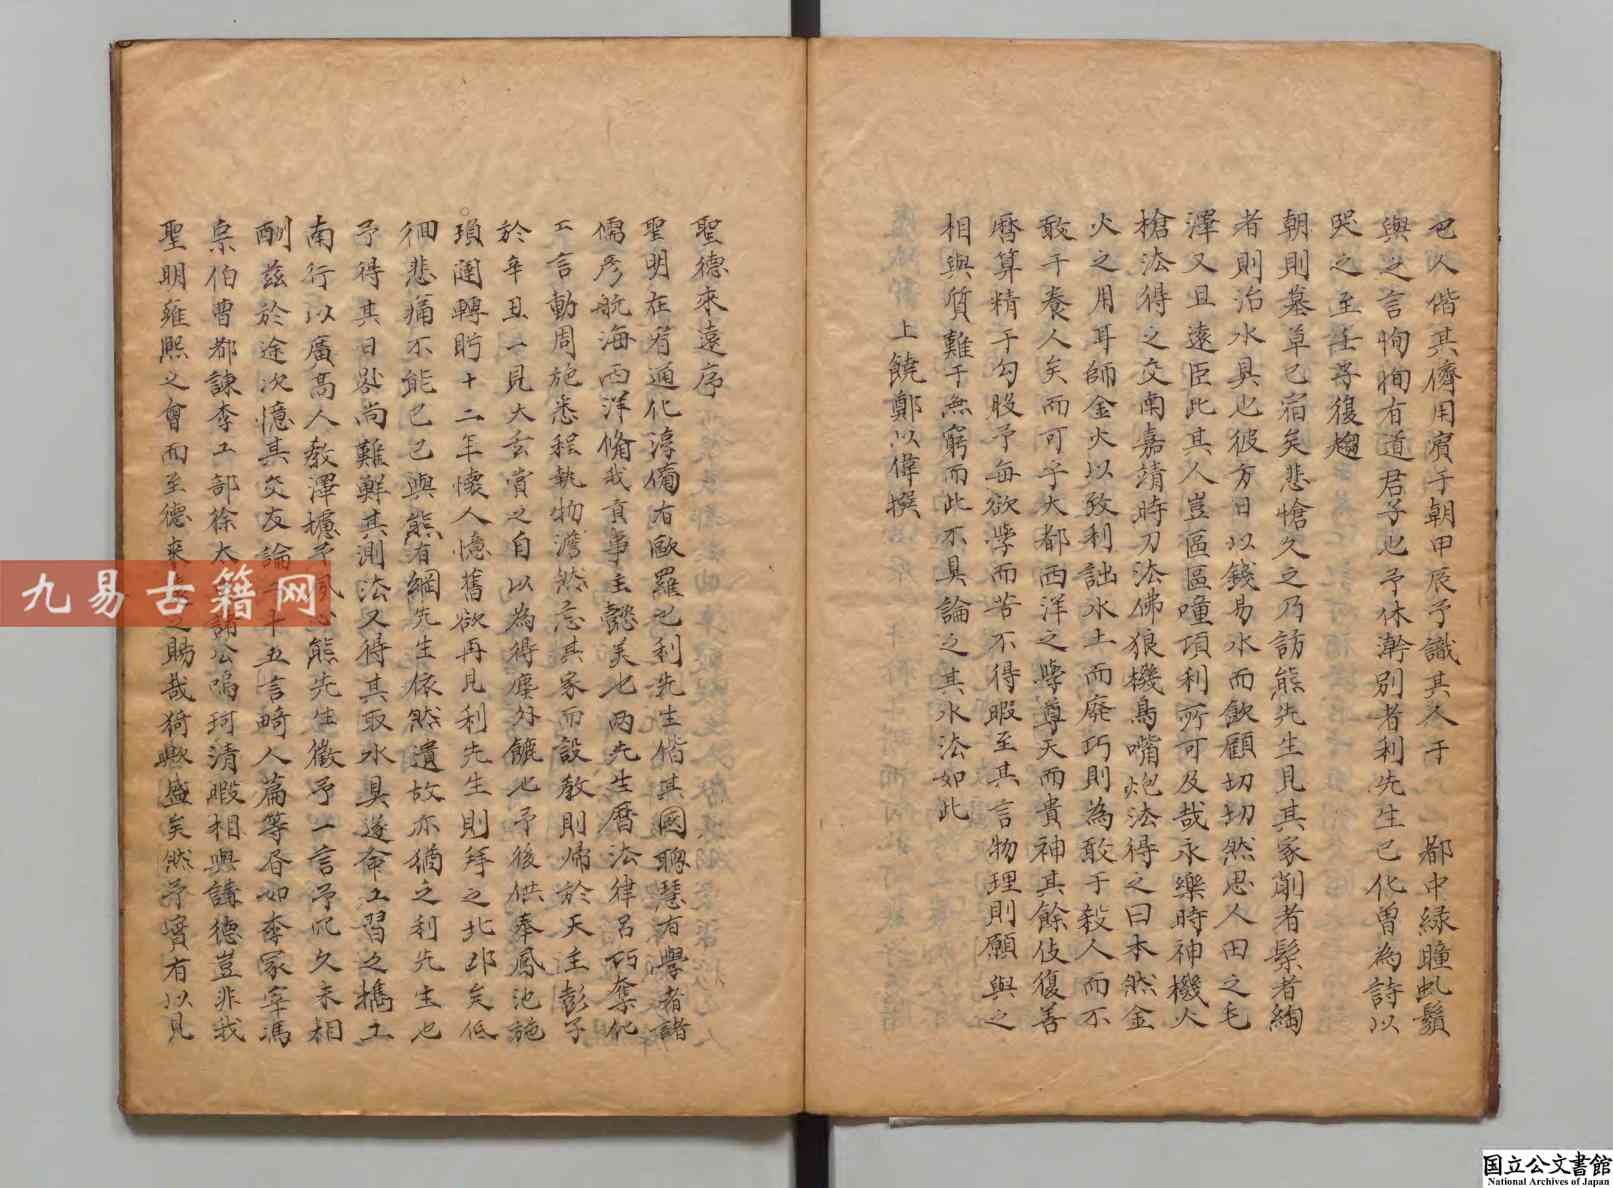 也久偕其儕用賓于朝甲辰予識其人于 都中緑瞳虬鬚
與之言恂恂有道君子也予休澣別者利先生已化曾為詩以
哭之至壬子復趨
朝則墓草已宿矣悲愴久之乃訪熊先生見其家削者髹者綯
者則治水具也彼方日以錢易水而飲顧切切然思人田之毛
澤又且遠臣此其人豈區區曈項利所可及哉永樂時神機火
槍法得之交南嘉靖時刀法佛狼機鳥嘴炮法得之日本然金
火之用耳師金火以致利詘水土而廃巧則為敢于殺人而不
敢于養人矣而可乎大都西洋之學尊天而貴神其餘伎復善
曆算精于勾股予每欲學而苦不得暇至其言物理則願與之
相與質難于無窮而此不具論之其水法如此
上饒鄭以偉撰
聖德來遠序
聖明在宥通化淳備有歐羅巴利先生偕其國聰慧有學者諸
儒彥航海西洋脩我貢事主懿美也兩先生曆法律呂巧奪化
工言動周施悉程執物澹然忘其家而設教則帰於天主彭子
於辛丑一見大玄賞之自以為得塵外觀也予後供奉鳳池施
瑣闥轉盻十二年懷人憶舊欲再見利先生則拜之北邙矣低
徊悲痛不能已已與熊有綱先生依然遺故亦猶之利先生也
予得其日晷尚難觧其測法又得其取水具遂命工習之携之
南行以廣高人教澤據予夙心熊先生徵予一言予所久未相
酬茲於途次憶其交友論二十五言畸人篇等脣如李冢宰馮
宗伯曹都諫李工部徐太史諸公鳴珂清暇相與講德豈非我
聖明雍熙之會而至德來遠之賜哉猗歟盛矣然予實有以見
九易古籍网
国立公文書館
National Archives of Japan